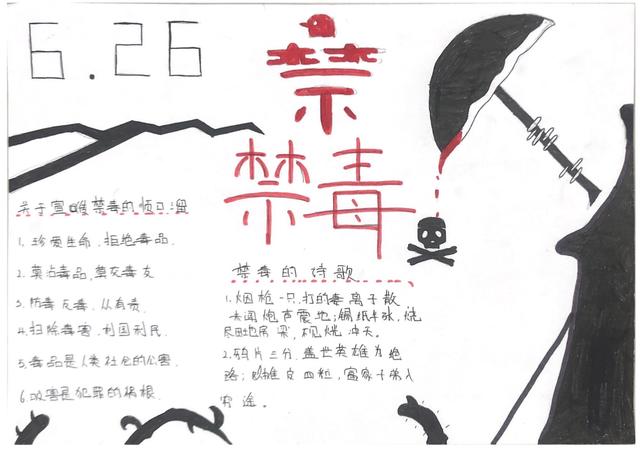 6.26
禁
禁毒
关于宣唯禁毒的顺口溜
1、珍爱生命，拒绝毒品。
2、莫沾毒品，莫交毒友
3、防毒反毒，人人有责
4、扫除毒害，利国利民。
5、毒品是人类社会的公害
6、毒是犯罪的祸根
禁毒的诗歌
1、烟枪一只，打的妻离子散
未闻炮声震地；锡纸半张，烧
尽田地房梁，枧烧冲天。
2、鸦片三分，盖世英雄为绝
路；四粒，富家子弟入
穷途。